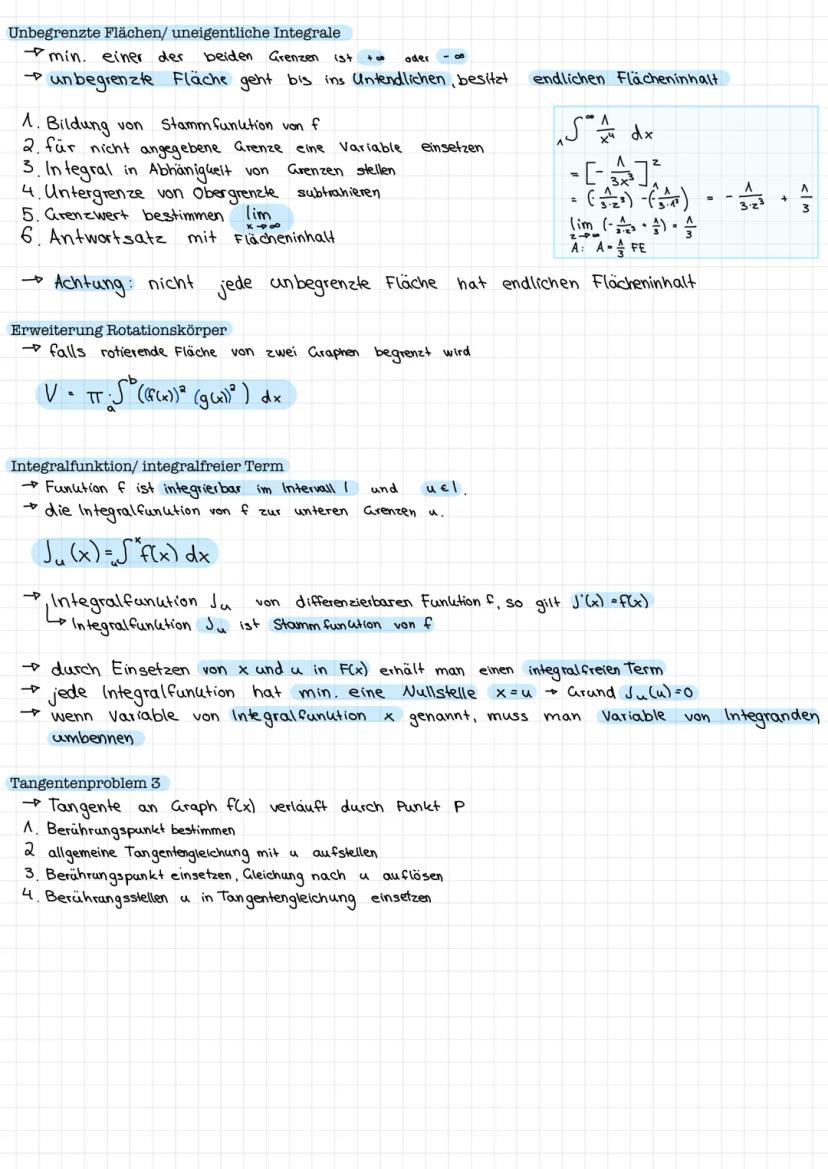 Unbegrenzte Flächen/ uneigentliche Integrale
→ min. einer der beiden Grenzen ist +∞ oder -∞
→ unbegrenzte Fläche geht bis ins Untendlichen, besitzt endlichen Flächeninhalt
1. Bildung von Stammfunktion von f
2. für nicht angegebene Grenze eine Variable einsetzen
3. Integral in Abhänigkeit von Grenzen stellen
4. Untergrenze von Obergrenzte subtrahieren
5. Grenzwert bestimmen lim x→∞
6. Antwortsatz mit Flächeninhalt
₁∫^∞ 1/x⁴ dx
= [- 1/3x³]₁^z
= (-1/3·z³) -(-1/3·1³) = - 1/3·z³ + 1/3
lim z→∞ (-1/3·z³ + 1/3) = 1/3
A: A = 1/3 FE
→ Achtung: nicht jede unbegrenzte Fläche hat endlichen Flächeninhalt
Erweiterung Rotationskörper
→ falls rotierende Fläche von zwei Graphen begrenzt wird
V = π · ₐ∫^b ((f(x))² (g(x))²) dx
Integralfunktion/ integralfreier Term
→ Funktion f ist integrierbar im Intervall I und u ∈ I.
→ die Integralfunktion von f zur unteren Grenzen u.
Jᵤ(x) = ᵤ∫^x f(x) dx
→ Integralfunktion Jᵤ von differenzierbaren Funktion f, so gilt J'(x) = f(x)
↳ Integralfunktion Jᵤ ist Stammfunktion von f
→ durch Einsetzen von x und u in F(x) erhält man einen integralfreien Term
→ jede Integralfunktion hat min. eine Nullstelle x = u → Grund Jᵤ(u) = 0
→ wenn Variable von Integralfunktion x genannt, muss man Variable von Integranden
umbennen
Tangentenproblem 3
→ Tangente an Graph f(x) verläuft durch Punkt P
1. Berührungspunkt bestimmen
2 allgemeine Tangentengleichung mit u aufstellen
3. Berührungspunkt einsetzen, Gleichung nach u auflösen
4. Berührungsstellen u in Tangentengleichung einsetzen